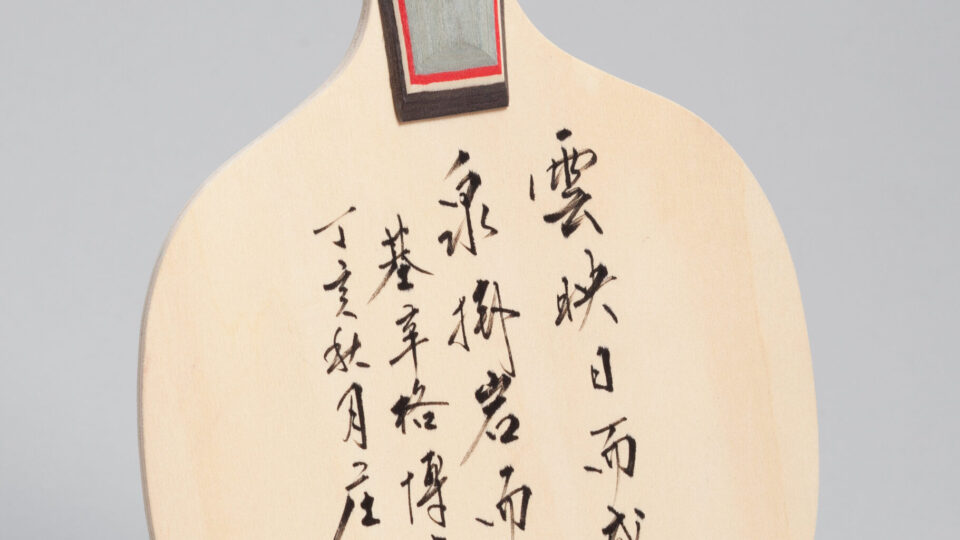 雲映日而成
泉掛岩而
基辛格博
丁亥秋月庄